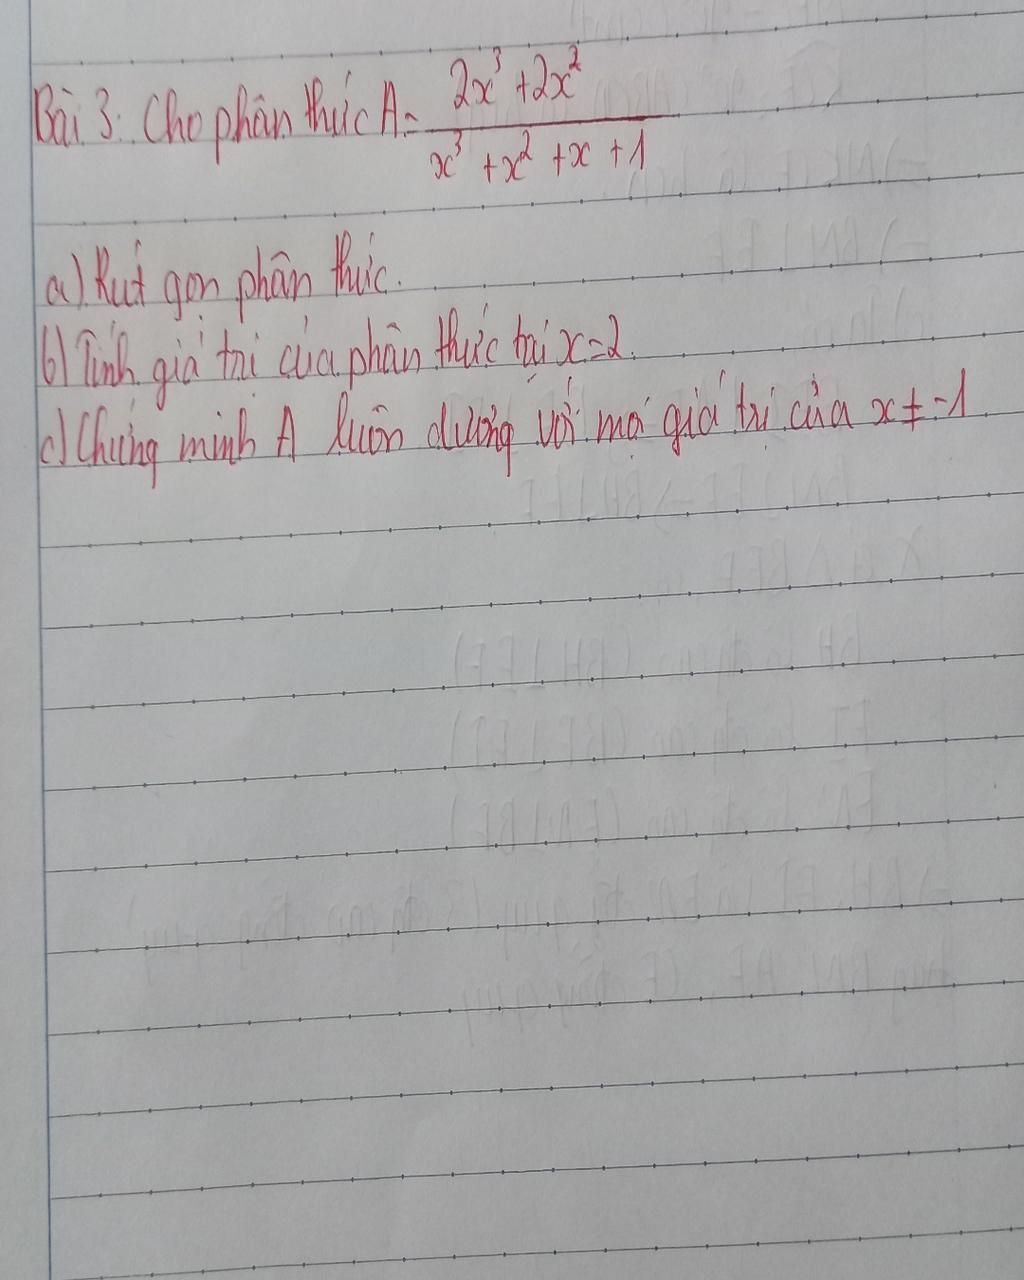 Bài 3: Cho phân thức A = \frac{2x^3 + 2x^2}{x^3 + x^2 + x + 1}
a) Rút gọn phân thức.
b) Tính giá trị của phân thức tại x = 2.
c) Chứng minh A luôn dương với mọi giá trị của x ≠ -1